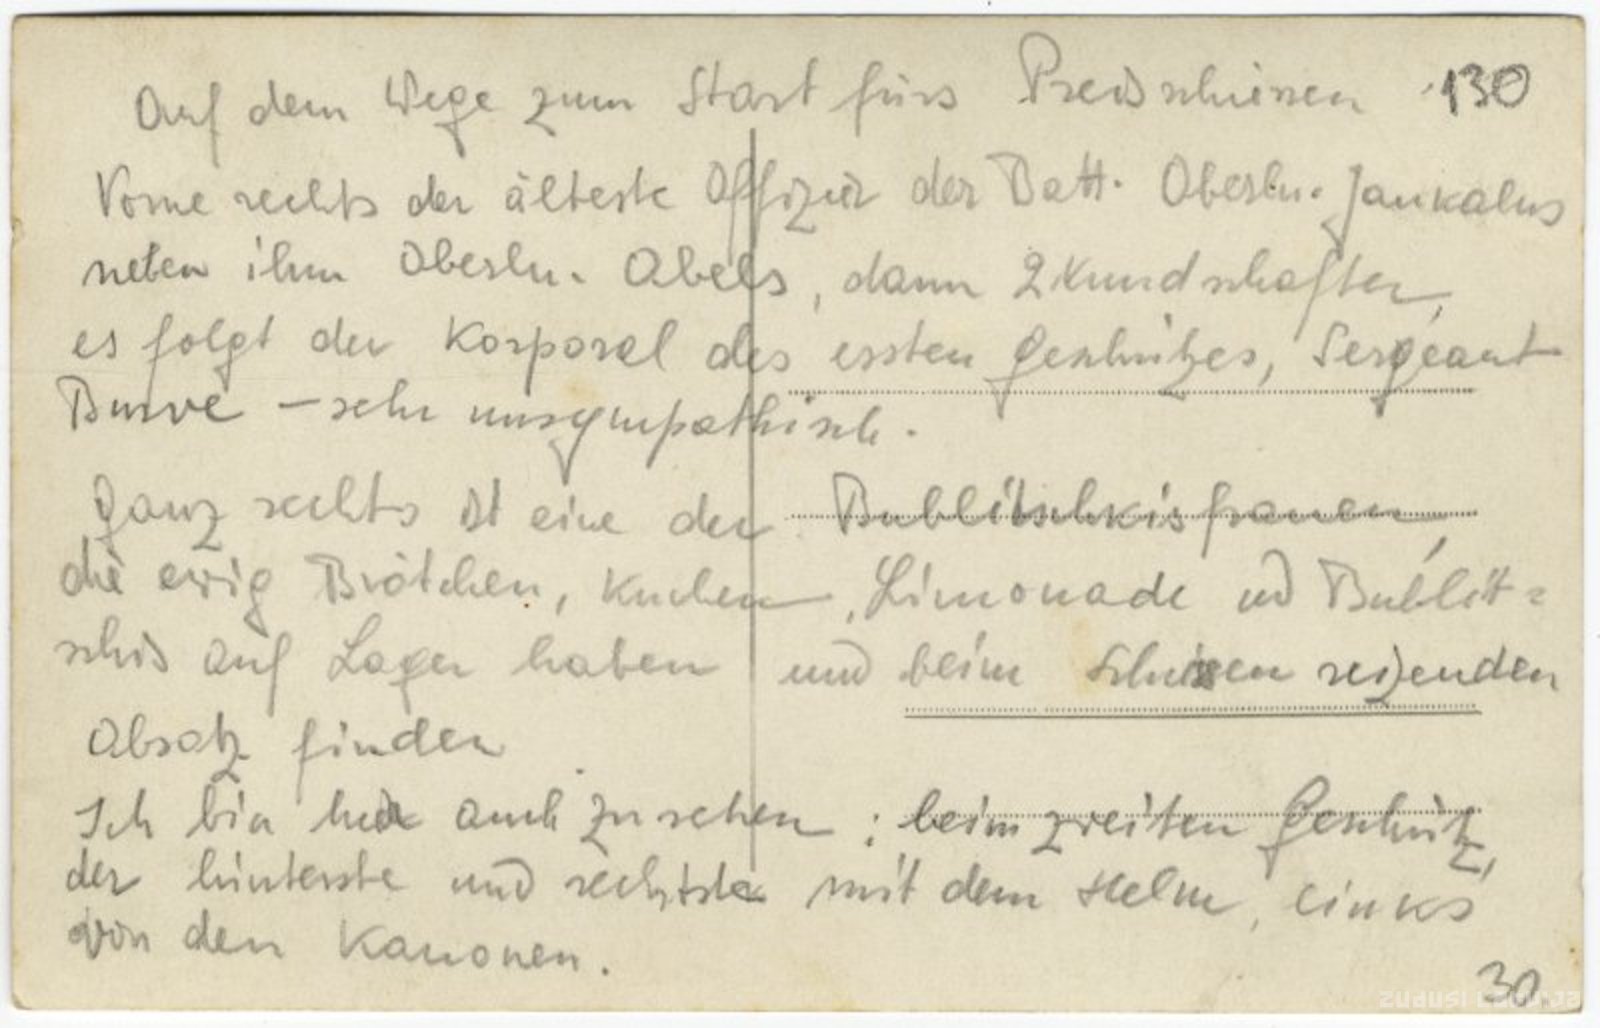 Auf dem Wege zum Start fürs Preisschiessen 130
Vorne rechts der älteste Offizier der Batt. Oberltn. Jankalns
neben ihm Oberltn. Abels, dann 2 Kundschafter,
es folgt der Korporal des ersten Geschützes, Sergeant
Burve – sehr unsympathisch.
Ganz rechts ist eine der Bublitschkisfrauen,
die ewig Brötchen, Kuchen, Limonade und Bublit=
schkis auf Lager haben und beim Schiessen reizenden
Absatz finden
Ich bin hier auch zu sehen: beim zweiten Geschütz,
der hinterste und rechtste mit dem Helm, links
von den Kanonen.
30.